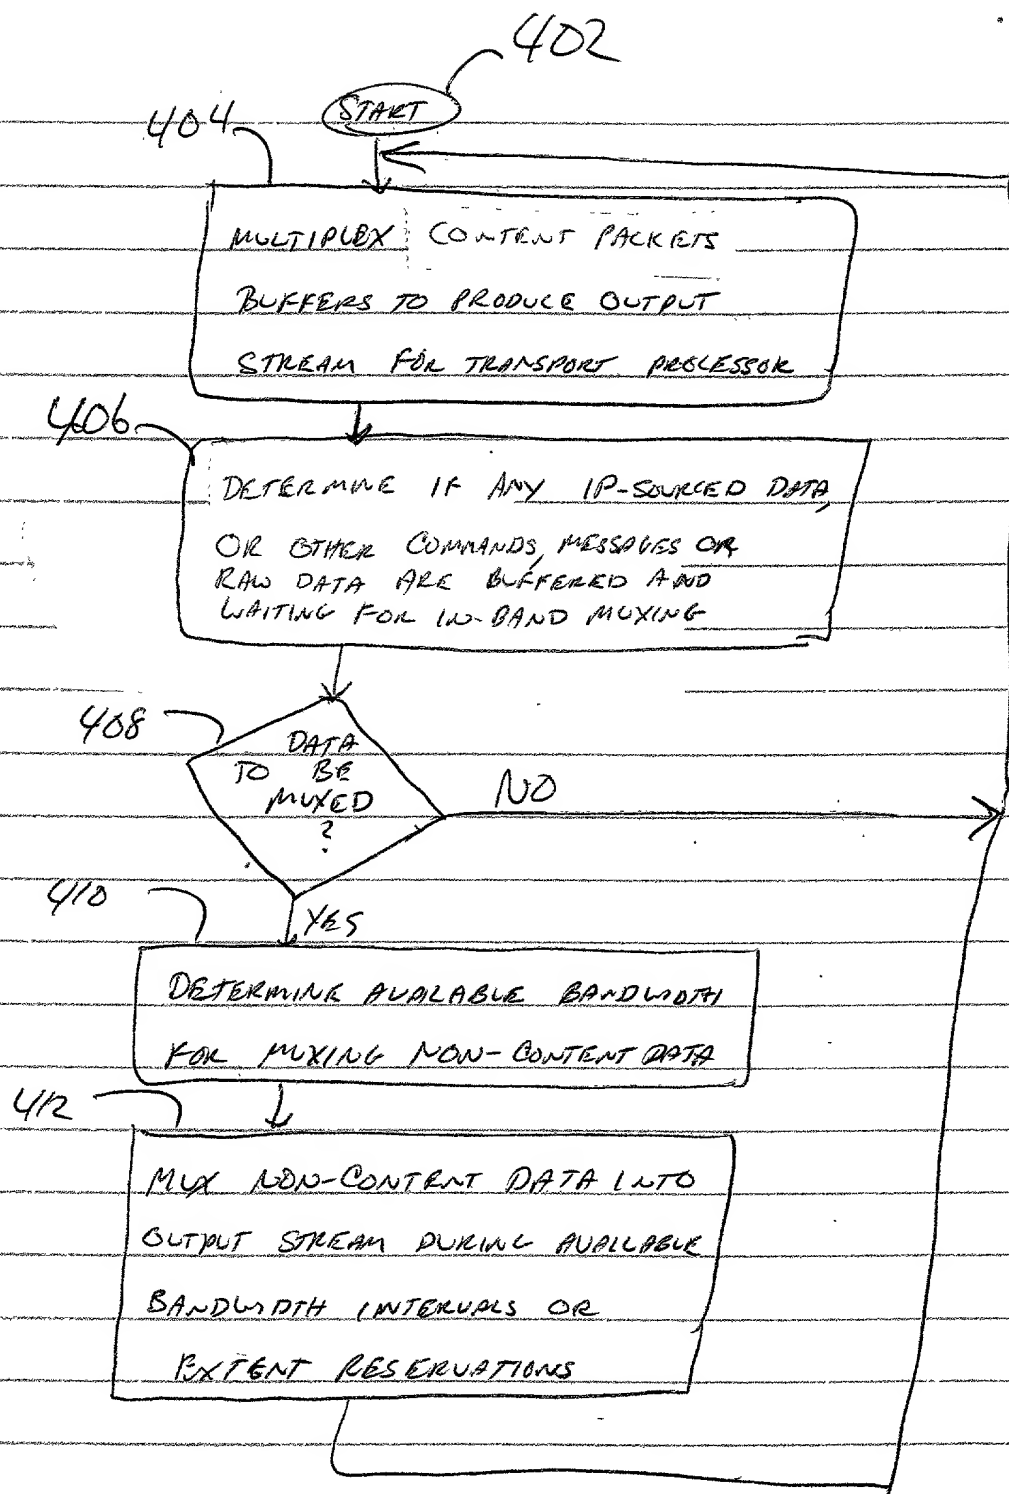 402
START
404
MULTIPLEX CONTENT PACKETS
BUFFERS TO PRODUCE OUTPUT
STREAM FOR TRANSPORT PROCESSOR
406
DETERMINE IF ANY IP-SOURCED DATA,
OR OTHER COMMANDS, MESSAGES OR
RAW DATA ARE BUFFERED AND
WAITING FOR IN-BAND MUXING
408
DATA
TO BE
MUXED
?
NO
410
YES
DETERMINE AVAILABLE BANDWIDTH
FOR MUXING NON-CONTENT DATA
412
MUX NON-CONTENT DATA INTO
OUTPUT STREAM DURING AVAILABLE
BANDWIDTH INTERVALS OR
EXTENT RESERVATIONS